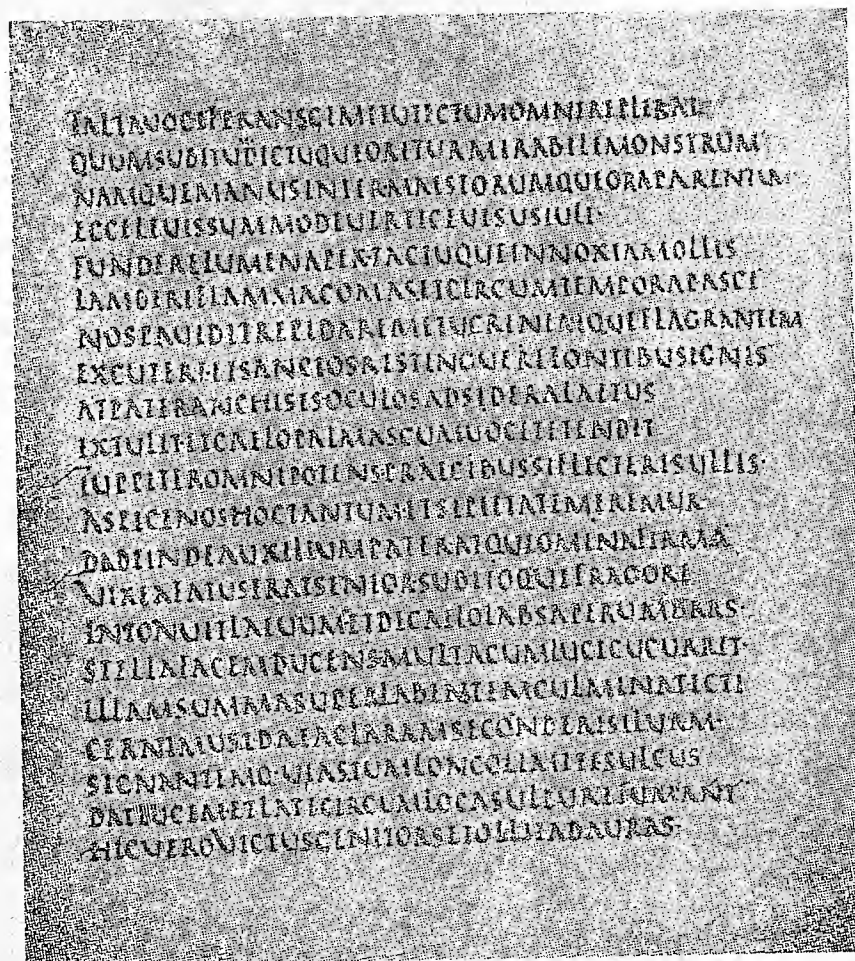 TALIAVOCIFERANSGEMITUTECTUMOMNEREPLEBAT·
QUUMSUBITUDICTUQUEORITURMIRABILEMONSTRUM
NAMQUEMANUSINTERMAESTORUMQUEORAPARENTUM·
ECCELEUISSUMMODEUERTICEUISUSIULI·
FUNDERELUMENAPEXTACTUQUEINNOXIAMOLLIS
LAMBEREFLAMMACOMASETCIRCUMTEMPORAPASCI
NOSPAUIDITREPIDAREMETUCRINEMQUEFLAGRANTEM
EXCUTEREETSANCTOSRESTINGUEREFONTIBUSIGNIS
ATPATERANCHISESOCULOSADSIDERALAETUS
EXTULITETCAELOPALMASCUMUOCETETENDIT
IUPPITEROMNIPOTENSPRAECIBUSSIFLECTERISULLIS·
ASPICENOSHOCTANTUMETSIPIETATEMEREMUR·
DADEINDEAUXILIUMPATERATQUEOMINAFIRMA
VIXEAFATUSERATSENIORSUBITOQUEFRAGORE
INTONUITLAEUUMETDECAELOLABSAPERUMBRAS·
STELLAFACEMDUCENSMULTACUMLUCECUCURRIT·
ILLAMSUMMASUPERLABENTEMCULMINATECTI
CERNIMUSIDAEACLARAMSECONDERESILUAM·
SIGNANTEMQ·UIASTUMLONGOLIMITESULCUS
DATLUCEMETLATECIRCUMLOCASULPUREFUMANT
HICUEROVICTUSGENITORSETOLLITADAURAS·